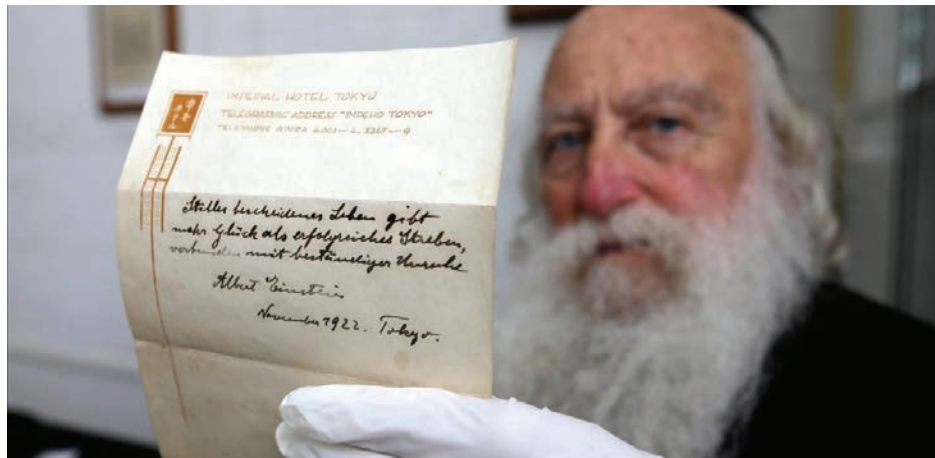 帝國
ホテル
IMPERIAL HOTEL TOKYO
TELEGRAPHIC ADDRESS "IMPEHO TOKYO"
TELEPHONE GINZA
Stilles bescheidenes Leben gibt
mehr Glück als erfolgreiches Streben,
verbunden mit beständiger Unruhe
Albert Einstein
November 1922. Tokyo.